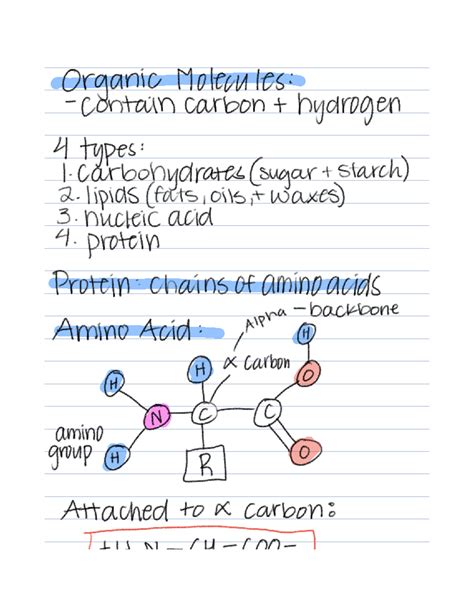 Organic Molecules:
- contain carbon + hydrogen
4 types:
1. carbohydrates (sugar + starch)
2. lipids (fats, oils, + waxes)
3. nucleic acid
4. protein
Protein: chains of amino acids
Alpha - backbone
Amino Acid:
H
H α carbon O
H
N C C
amino
group H R O
Attached to α carbon:
+H₃N - CH - COO-